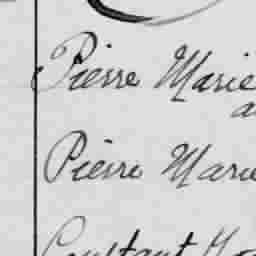 Pierre Marie
a
Pierre Marie
Constant